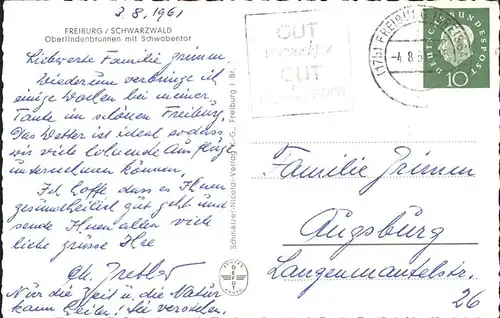 3.8.1961
FREIBURG / SCHWARZWALD
Oberlindenbrunnen mit Schwabentor
Liebwerte Familie Grimm.
Wiederum verbringe ich
einige Wochen bei meiner
Tante im schönen Freiburg.
Das Wetter ist ideal sodass
wir viele lohnende Ausflüge
unternehmen können.
Ich hoffe dass es Ihnen
gesundheitlich gut geht und
sende Ihnen allen viele
liebe Grüsse Ihre
Nur die Zeit u. die Natur
kann heilen! Sie verstehen.
Schnelzer-Nicolai-Verlag K.-G., Freiburg i. Br.
GUT
GUT
(17b) FREIBURG
-4.8.
DEUTSCHE BUNDESPOST
10
Familie
Augsburg
Langenmantelstr.
26